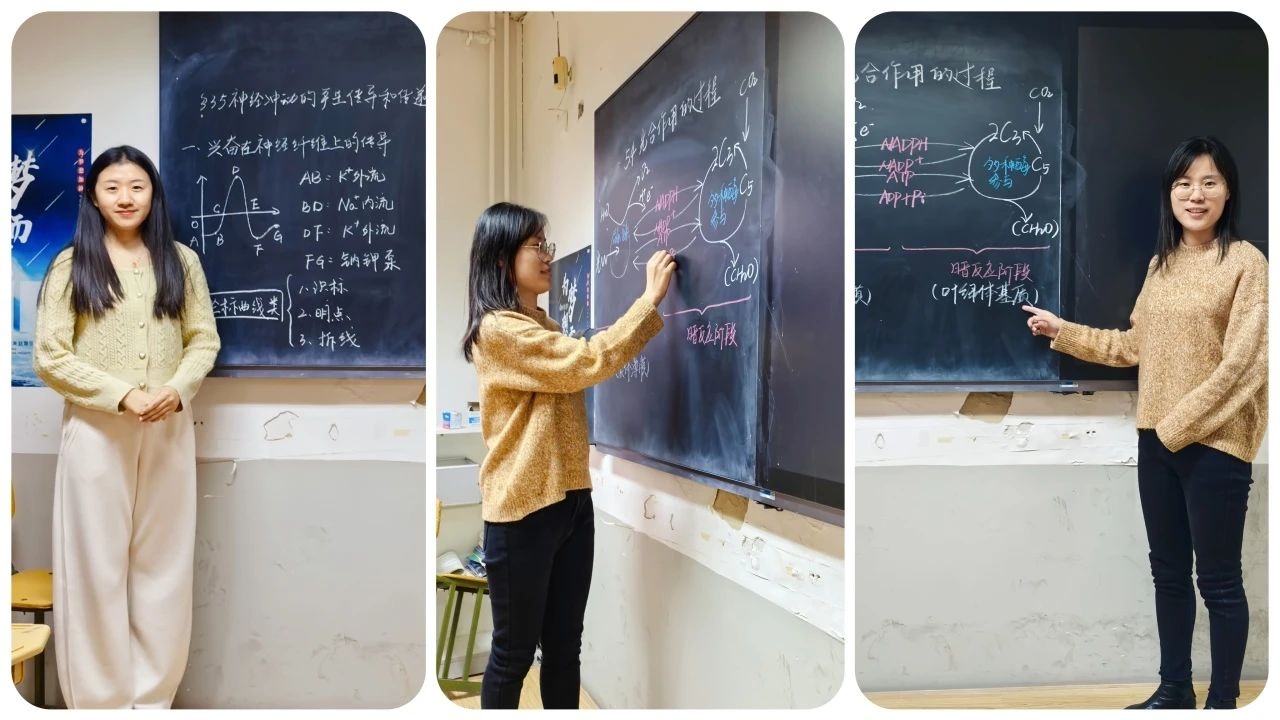 §3.5 神经冲动的产生传导和传递
一、兴奋在神经纤维上的传导
D
C
E
O
A
B
F
G
AB: K⁺外流
BD: Na⁺内流
DF: K⁺外流
FG: 钠钾泵
坐标曲线类
1.识标
2.明点
3、拆线
梦
5.4 光合作用的过程
CO₂
2C₃
C₅
多种酶
参与
NADPH
(CH₂O)
暗反应阶段
梦
合作用的过程
CO₂
e⁻
NADPH
NADP⁺
ATP
ADP+Pi
2C₃
C₅
多种酶
参与
(CH₂O)
暗反应阶段
(叶绿体基质)